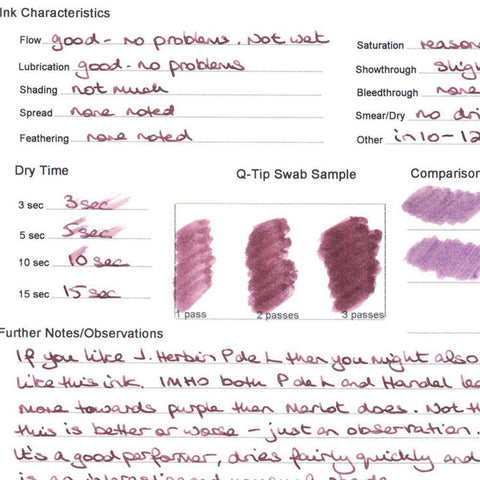 Ink Characteristics
Flow good - no problems. Not wet
Lubrication good - no problems
Shading not much
Spread none noted
Feathering none noted
Saturation reason
Showthrough slig
Bleedthrough none
Smear/Dry no dri
Other in 10-12
Dry Time
3 sec 3 sec
5 sec 5 sec
10 sec 10 sec
15 sec 15 sec
Q-Tip Swab Sample
1 pass 2 passes 3 passes
Comparison
Further Notes/Observations
If you like J. Herbin P de L then you might also
like this ink. IMHO both P de L and Handel lea
more towards purple than Merlot does. Not th
this is better or worse - just an observation.
It's a good performer, dries fairly quickly and
is an interesting and unusual shade